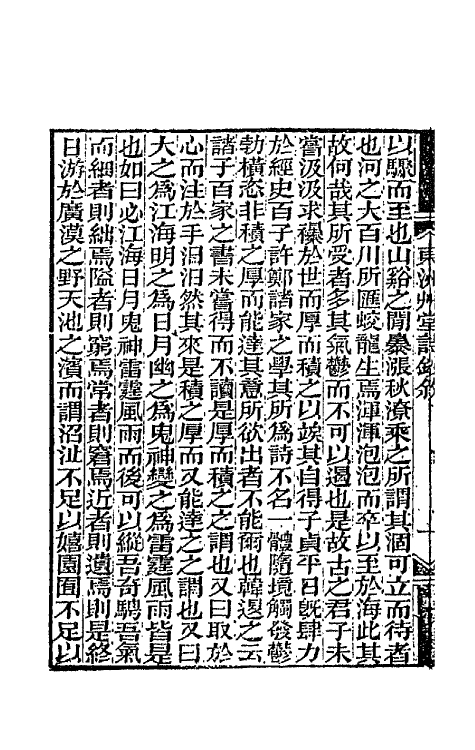 東洲艸堂詩鈔叙
以驟而至也山谿之間暴漲秋潦乘之所謂其涸可立而待者
也河之大百川所匯蛟龍生焉渾渾泡泡而卒以至於海此其
故何哉其所受者多其氣鬱而不可以遏也是故古之君子未
嘗汲汲求襮於世而厚而積之以竢其自得子貞平日旣肆力
於經史百子許鄭諸家之學其所爲詩不名一體隨境觸發鬱
勃橫恣非積之厚而能達其意所欲出者不能爾也韓退之云
諸子百家之書未嘗得而不讀是厚而積之之謂也又曰取於
心而注於手汩汩然其來是積之厚而又能達之之謂也又曰
大之爲江海明之爲日月幽之爲鬼神變之爲雷霆風雨皆是
也如曰必江海日月鬼神雷霆風雨而後可以縱吾奇騁吾氣
而細者則絀焉隘者則窮焉常者則窘焉近者則遺焉則是終
日游於廣漠之野天池之濱而謂沼沚不足以嬉園囿不足以